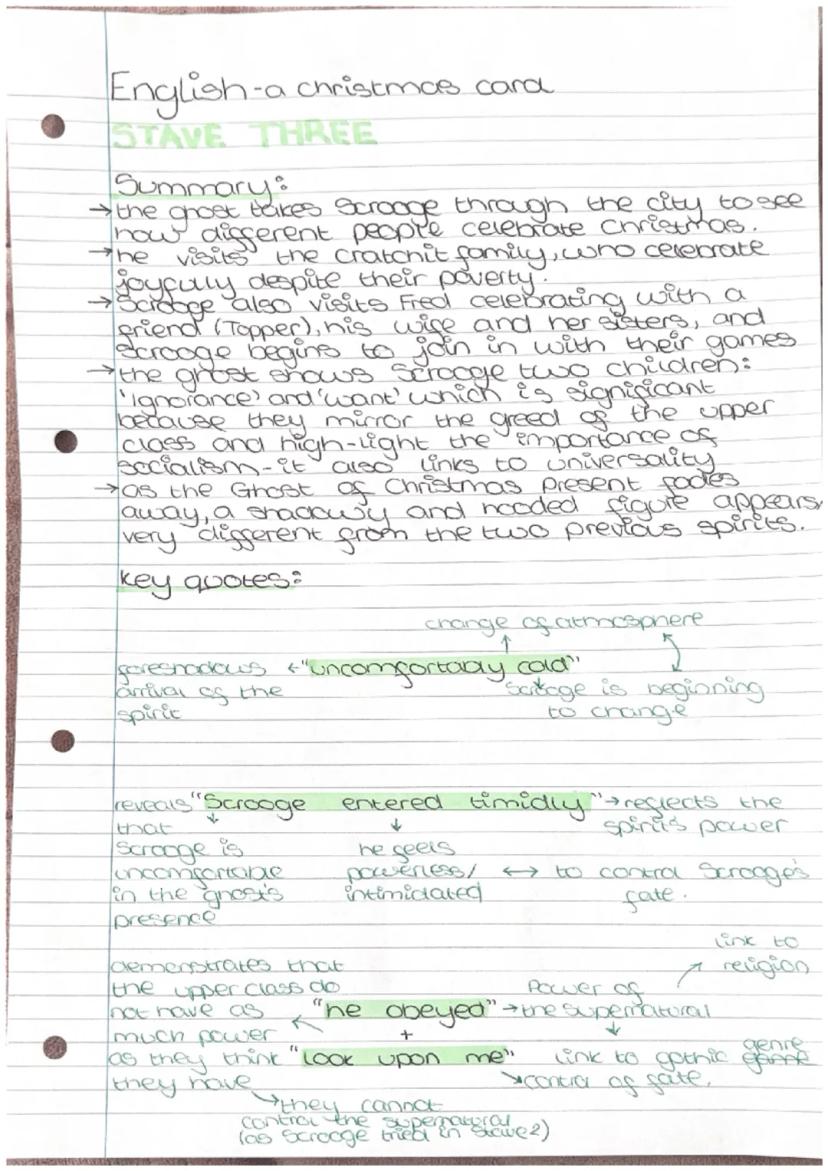 English-a christmas card
STAVE THREE
Summary:
→the ghost takes Scrooge through the city to see
how different people celebrate christmas.
→he visits the cratchit family, who celebrate
joyfully despite their poverty.
→Scrooge also visits Fred celebrating with a
friend (Topper), his wife and her sisters, and
Scrooge begins to join in with their games
→the ghost shows Scrooge two children:
'ignorance' and 'want' which is significant
because they mirror the greed of the upper
class and high-light the importance of
socialism-it also links to universality
→as the Ghost of Christmas Present fades
away, a shadowy and hooded figure appears,
very different from the two previous spirits.
key quotes:
change of atmosphere
foreshadows ← "uncomfortably cold"
arrival of the
spirit
Scrooge is beginning
to change
reveals "Scrooge entered timidly" → reflects the
that
spirit's power
Scrooge is
uncomfortable
in the ghost's
presence
he feels
powerless/
intimidated
↔ to control Scrooge's
fate.
link to
religion
demonstrates that
the upper class do
not have as
much power
as they think
they have
"he obeyed" → the supernatural
Power of
+
"Look upon me"
link to gothic genre
game
control of fate.
they cannot
control the supernatural
(as Scrooge tried in stave 2)